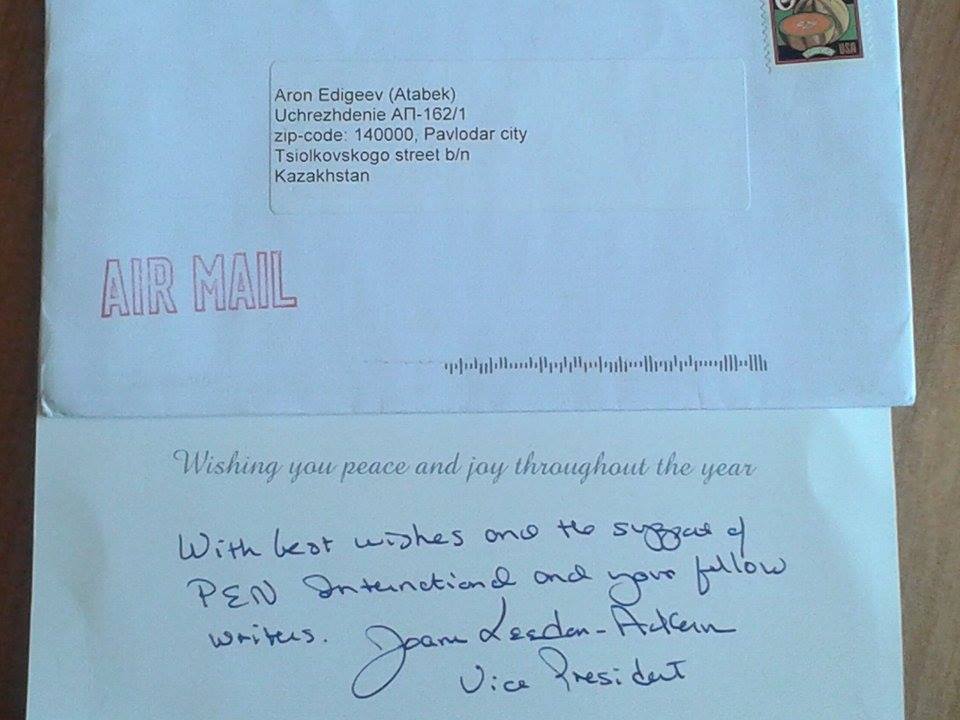 USA
Aron Edigeev (Atabek)
Uchrezhdenie АП-162/1
zip-code: 140000, Pavlodar city
Tsiolkovskogo street b/n
Kazakhstan
AIR MAIL
Wishing you peace and joy throughout the year
With best wishes and the support of
PEN International and your fellow
writers. Joanne Leedom-Ackerman
Vice President